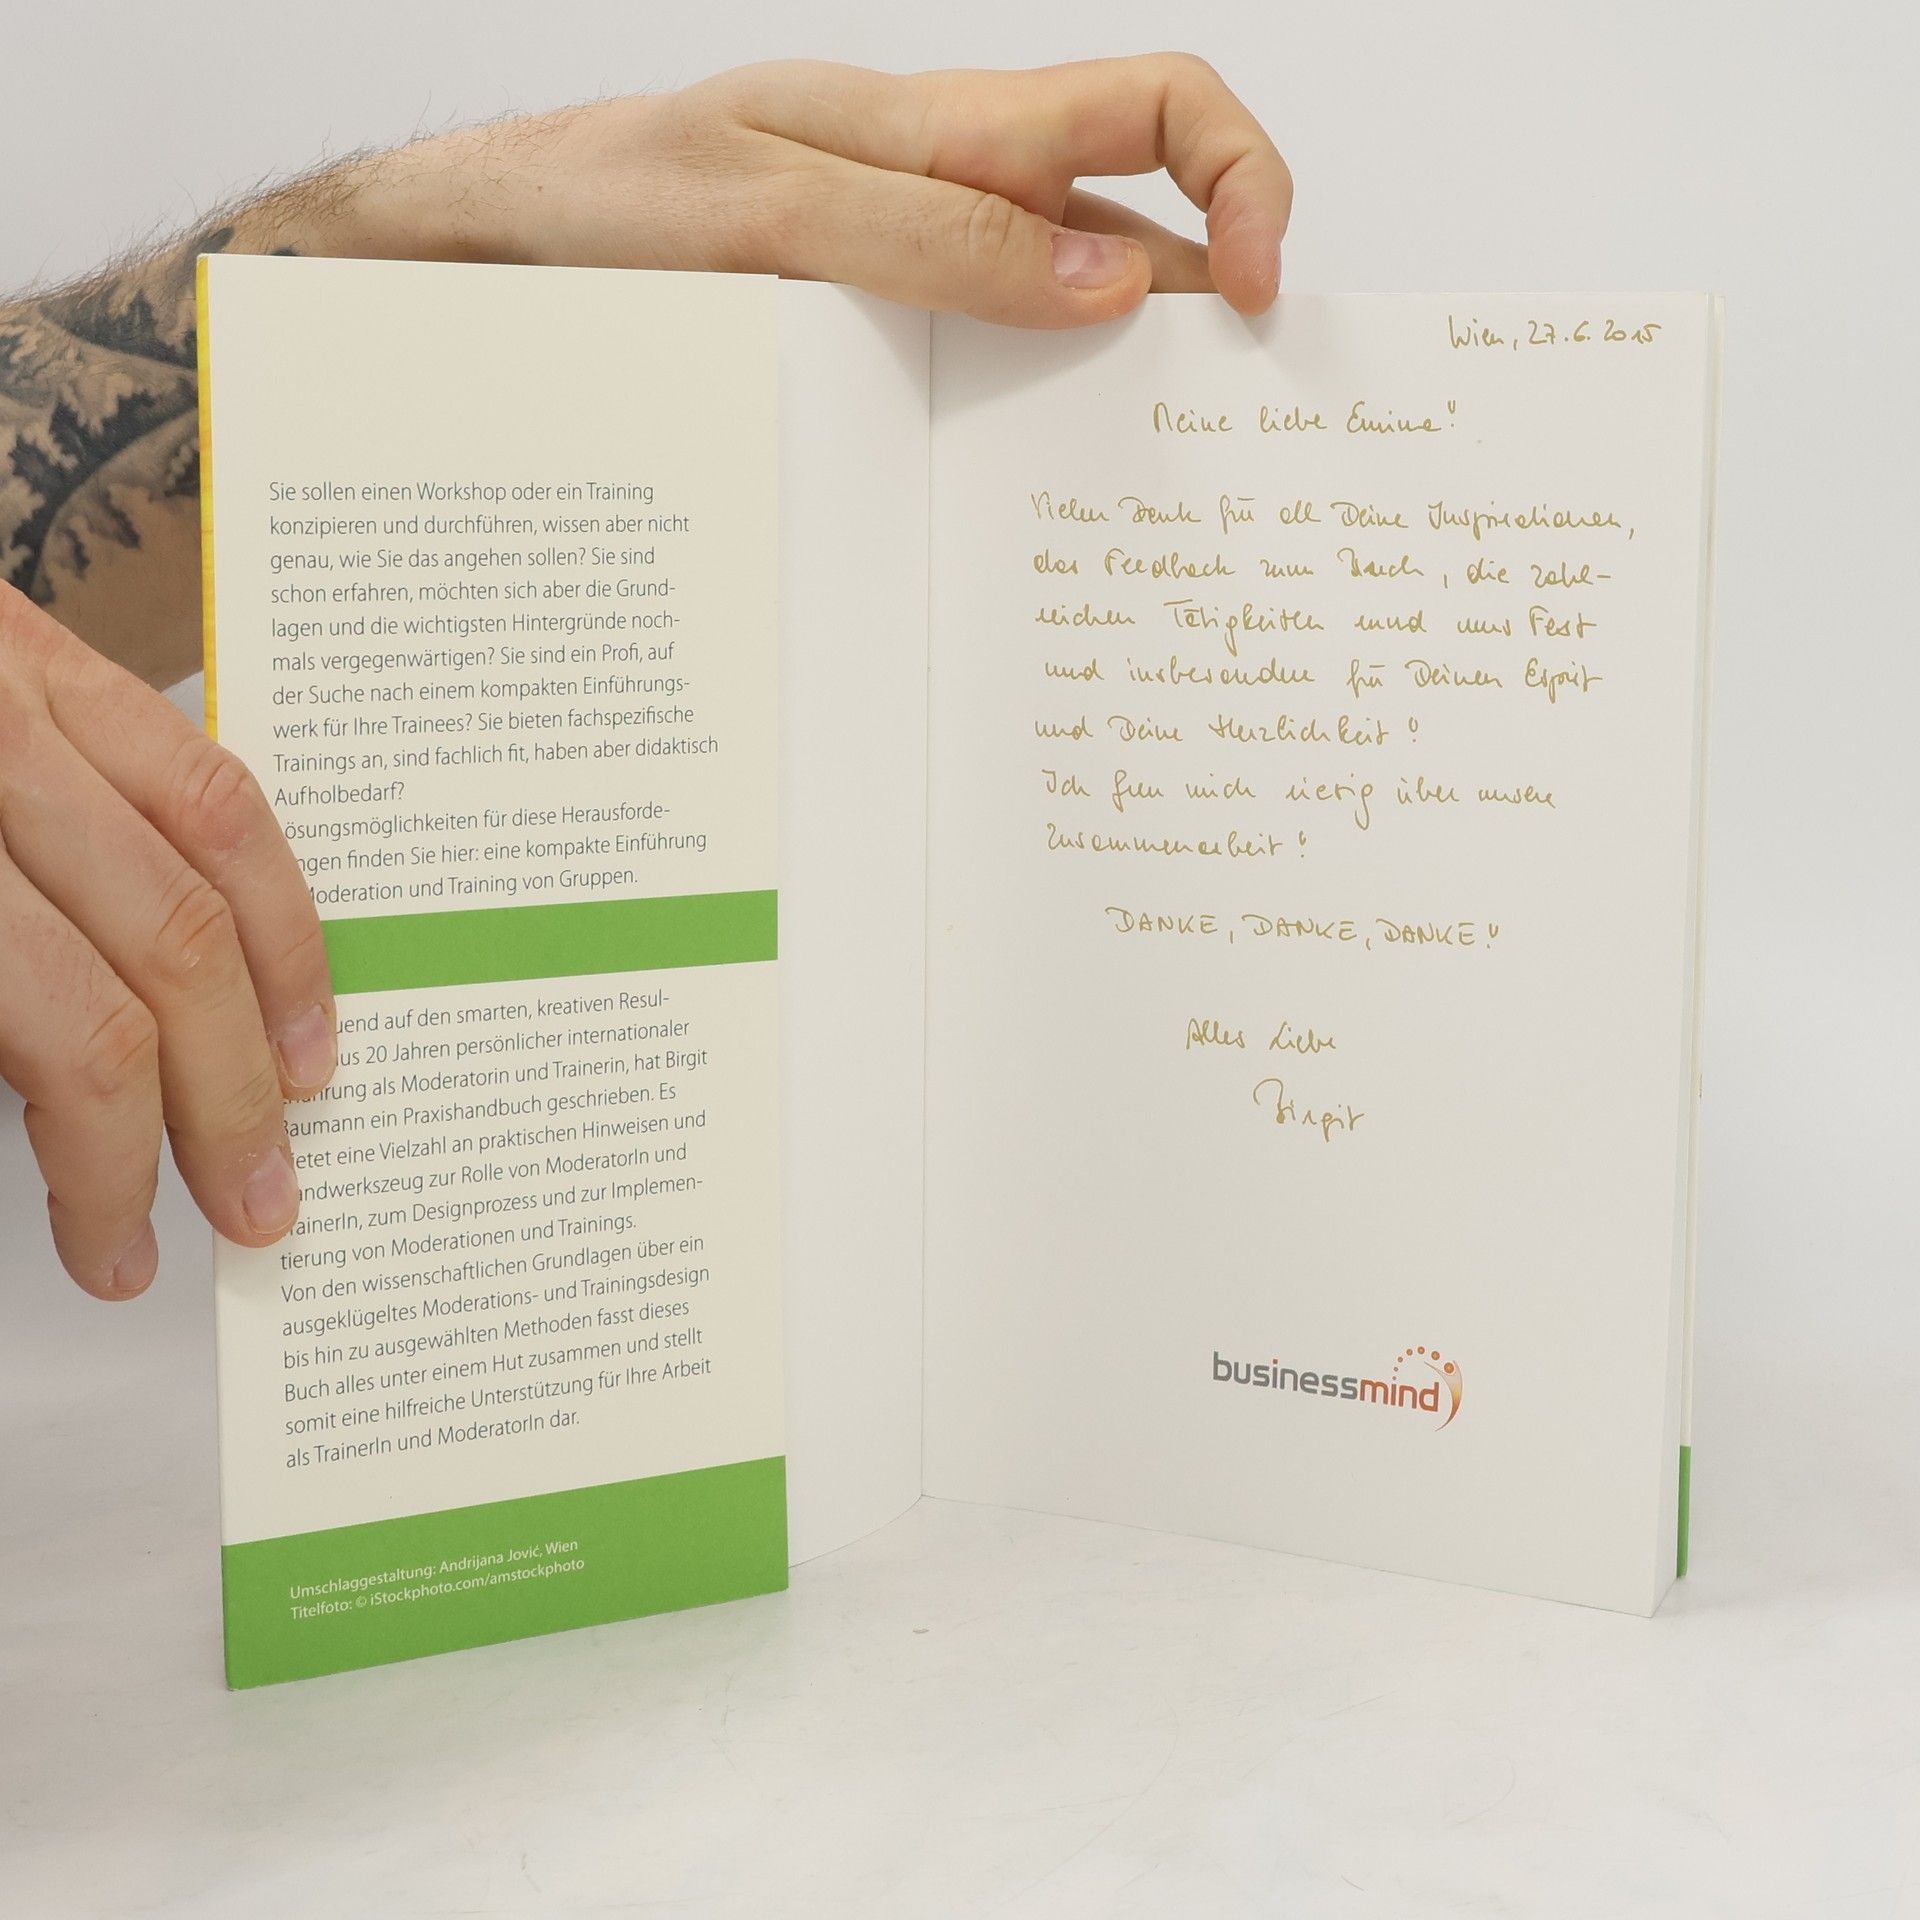 Sie sollen einen Workshop oder ein Training
konzipieren und durchführen, wissen aber nicht
genau, wie Sie das angehen sollen? Sie sind
schon erfahren, möchten sich aber die Grund-
lagen und die wichtigsten Hintergründe noch-
mals vergegenwärtigen? Sie sind ein Profi, auf
der Suche nach einem kompakten Einführungs-
werk für Ihre Trainees? Sie bieten fachspezifische
Trainings an, sind fachlich fit, haben aber didaktisch
Aufholbedarf?
ösungsmöglichkeiten für diese Herausforde-
ngen finden Sie hier: eine kompakte Einführung
Moderation und Training von Gruppen.
uend auf den smarten, kreativen Resul-
us 20 Jahren persönlicher internationaler
hrung als Moderatorin und Trainerin, hat Birgit
Baumann ein Praxishandbuch geschrieben. Es
ietet eine Vielzahl an praktischen Hinweisen und
andwerkszeug zur Rolle von ModeratorIn und
rainerIn, zum Designprozess und zur Implemen-
tierung von Moderationen und Trainings.
Von den wissenschaftlichen Grundlagen über ein
ausgeklügeltes Moderations- und Trainingsdesign
bis hin zu ausgewählten Methoden fasst dieses
Buch alles unter einem Hut zusammen und stellt
somit eine hilfreiche Unterstützung für Ihre Arbeit
als TrainerIn und ModeratorIn dar.
Umschlaggestaltung: Andrijana Jović, Wien
Titelfoto: © iStockphoto.com/amstockphoto
Wien, 27.6.2015
Meine liebe Emina!
Vielen Dank für all Deine Inspirationen,
das Feedback zum Buch, die zahl-
reichen Tätigkeiten rund ums Fest
und insbesondere für Deinen Esprit
und Deine Herzlichkeit!
Ich freu mich riesig über unsere
Zusammenarbeit!
DANKE, DANKE, DANKE!
Alles Liebe
Birgit
businessmind